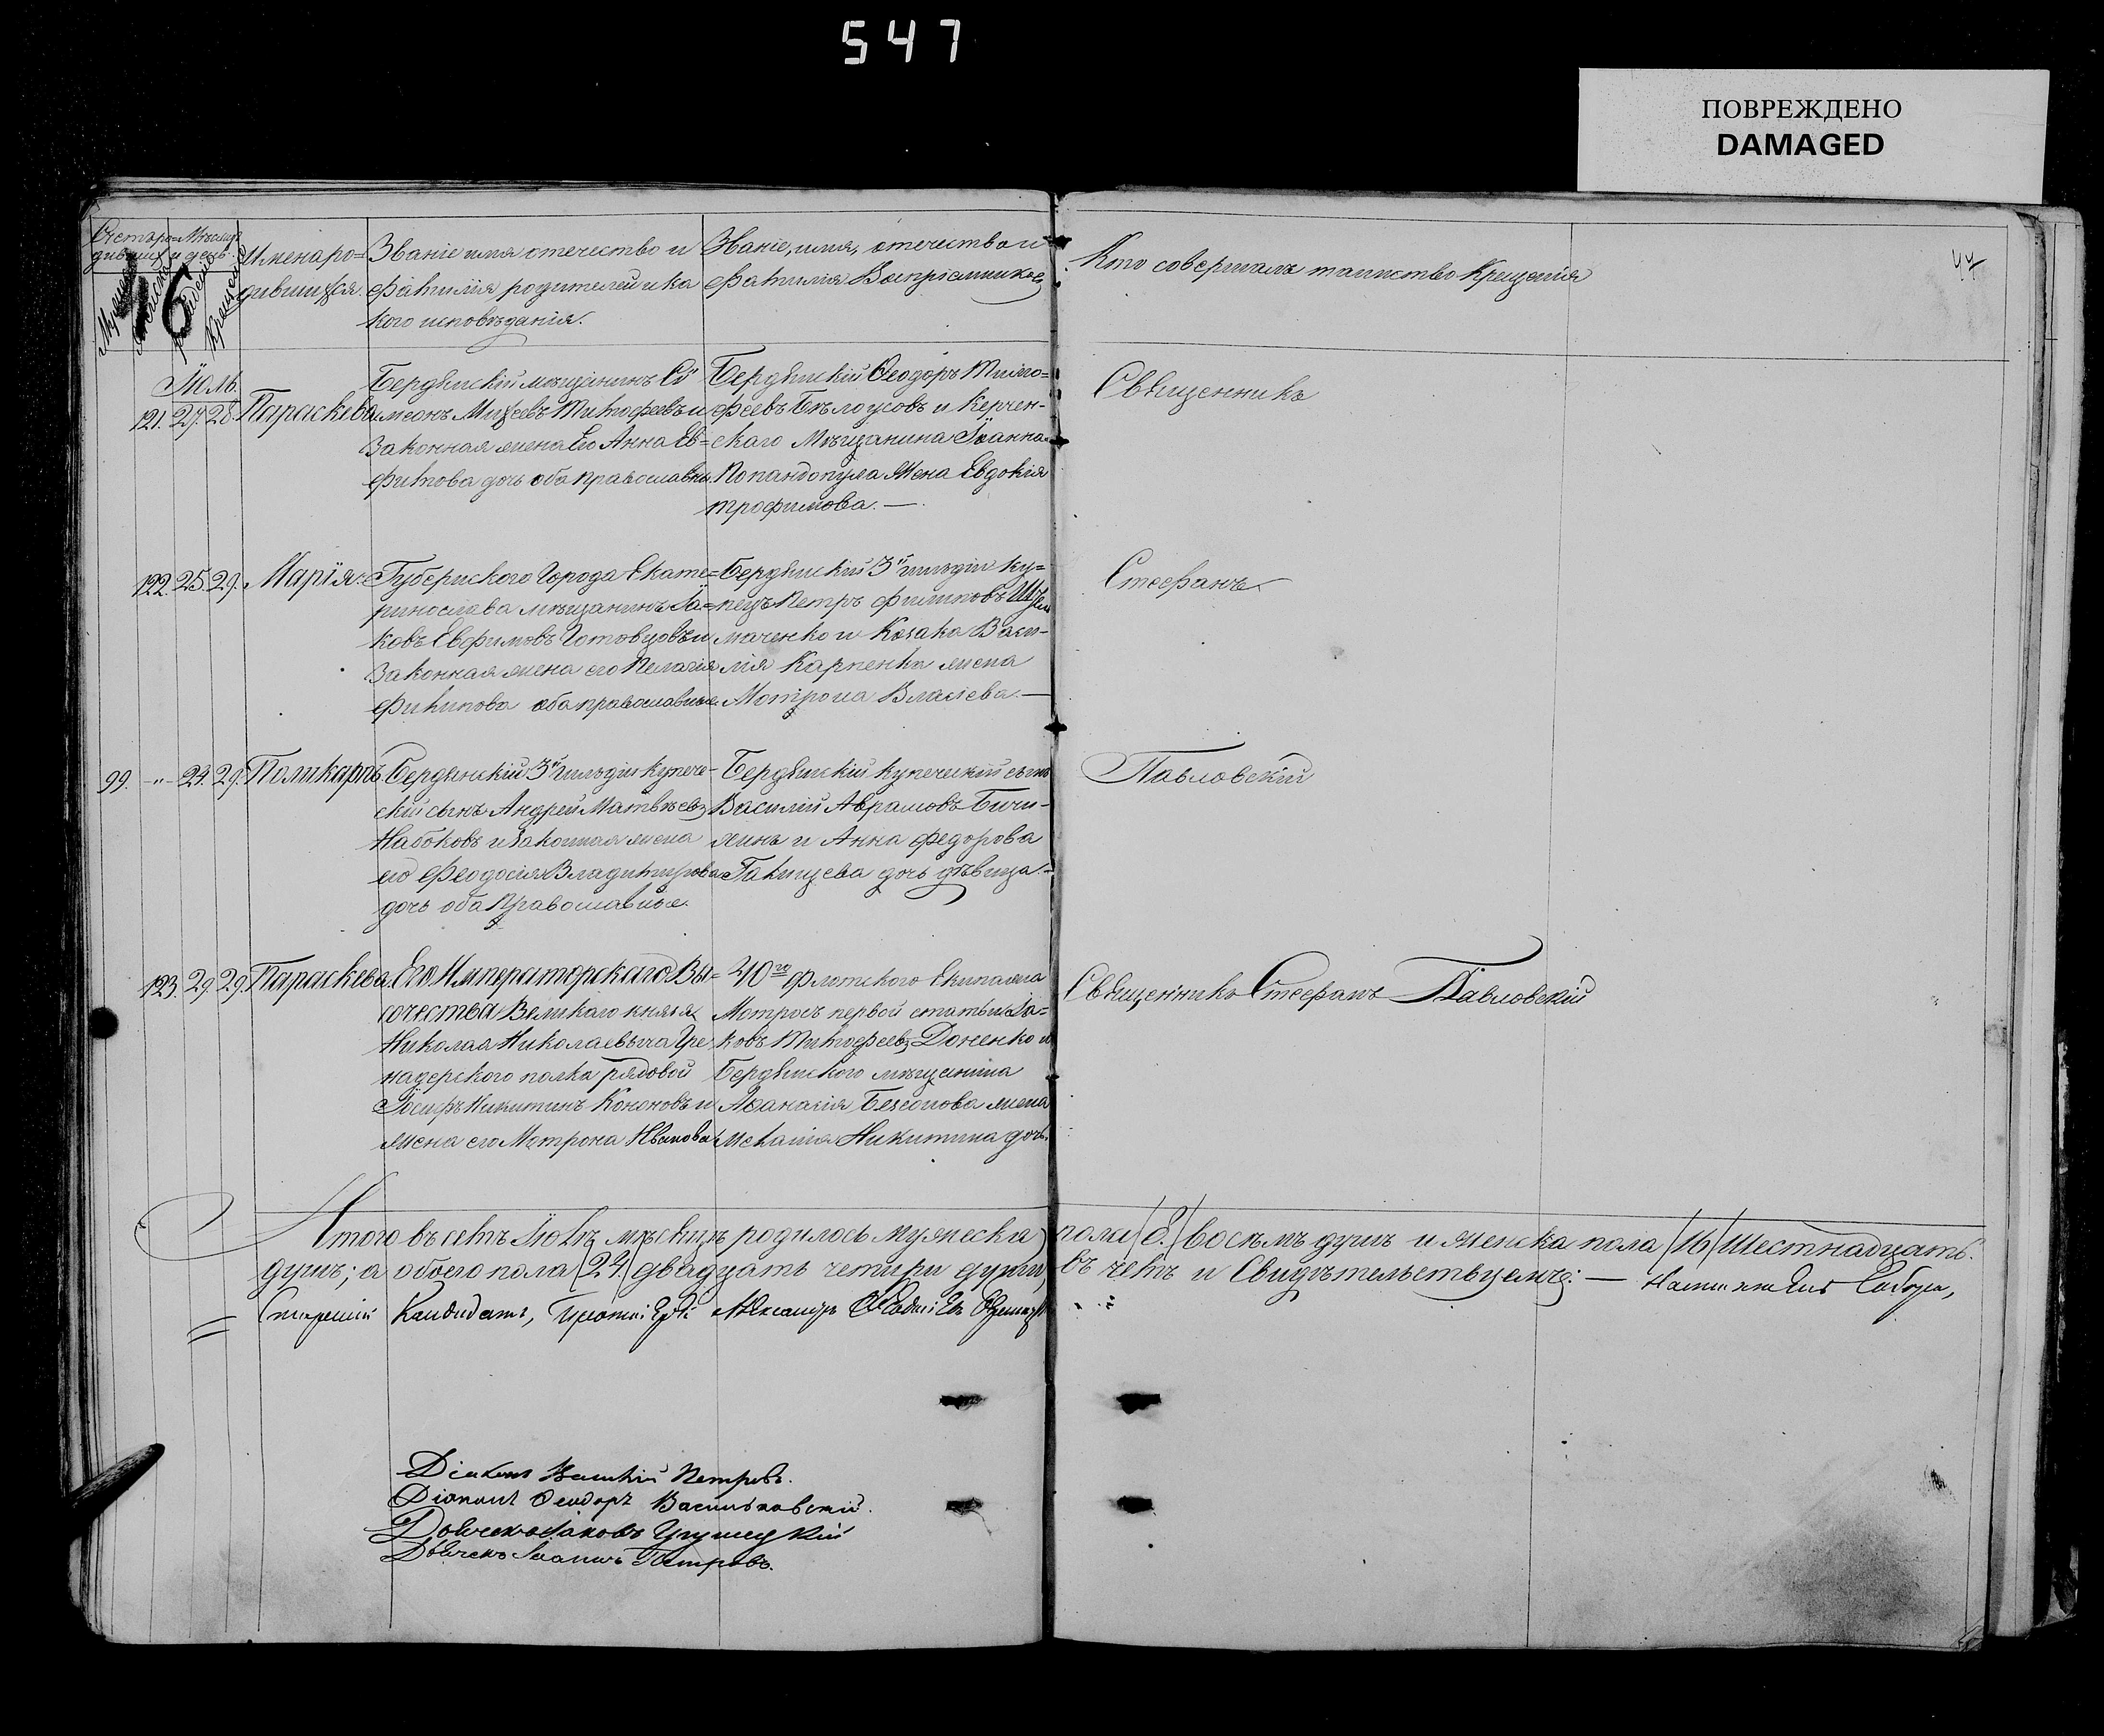 547
ПОВРЕЖДЕНО
DAMAGED
Счетъ ро= Мѣсяцъ
дивших и день
16
Имена ро=
дившихся.
Званіе имя отечество и
фамилія родителей и ка
кого исповѣданія.
Званіе, имя, отечество и
фамилія Воспріемниковъ
Кто совершалъ таинство Крещенія
Іюль.
121. 27. 28. Параскева
Бердянскій мѣщанинъ Си
меонъ Михеевъ Тимофеевъ и
Законная жена Его Анна Ев=
фимова дочь оба православны.
Бердянскій Ѳеодоръ Тимо=
феевъ Бѣлоусовъ и Керчен-
скаго Мѣщанина Іоанна
Попандопула Жена Евдокія
трофимова. —
Священникъ
122. 25. 29. Марія.
Губернского Города Екате=
ринослава мѣщанинъ Іа=
ковъ Евфимовъ Готовцовъ и
Законная жена его Пелагія
Филипова оба православные
Бердянскій 3й гильдіи ку=
пецъ Петръ Филиповъ
маченко и Козака Васи-
лія Карпенка жена
Мотрона Власіева. —
Стефанъ
99. -"- 24. 29. Поликарпъ.
Бердянскій 3й гильдіи купече-
скій сынъ Андрей Матвѣевъ
Набоковъ и Законная жена
его Феодосія Владимирова
дочь оба Православные.
Бердянскій купеческій сынъ
Василій Аврамовъ Бичи-
хинъ и Анна Федорова
Гакищева дочь дѣвица.-
Павловскій
123. 29. 29. Параскева.
Его Императорскаго Вы=
сочества Великаго князя
Николая Николаевыча Гре
надерского полка рядовой
Іосифъ Никитинъ Кононовъ и
Жена его Мотрона Иванова
40го Флотского Екипажа
Мотросъ первой статьи Іа=
ковъ Тимофеевъ Доненко и
Бердянского мѣщанина
Афанасія Безсонова жена
Меланія Никитина дочь.
Священникъ Стефанъ Павловскій
Итого въ семъ Іюлѣ мѣсяцѣ родилось мужеска пола /8./ восѣмъ душъ и женска пола /16/ Шестнадцать.
душъ; а обоего пола /24./ двадцать четыри души, въ чемъ и Свидѣтельствуемъ: —
Кандидатъ, Протоіерей Александръ
Діаконъ Василій Петровъ.
Діаконъ Ѳеодоръ Васильковскій.
Дьячекъ Іаковъ
Дьячекъ Іоаннъ Петровъ.